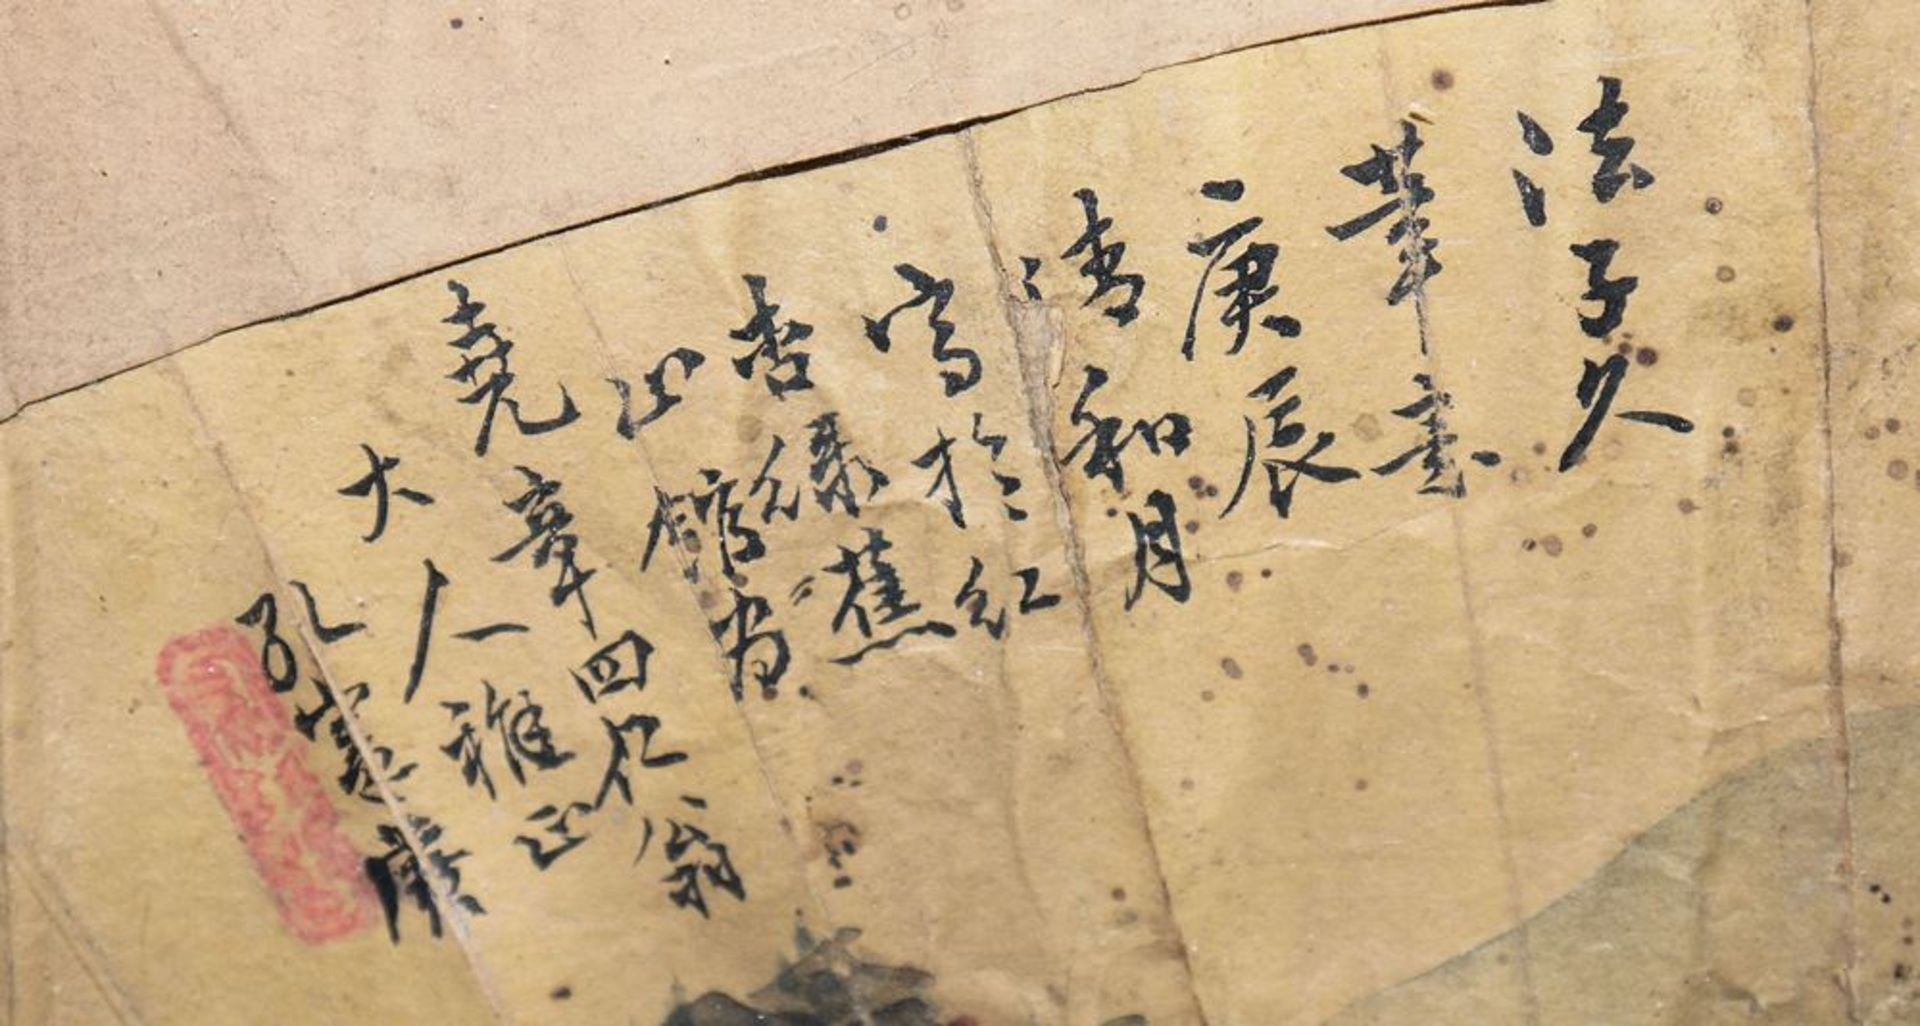 法子久
筆意
庚辰
清和月
寫於紅
杏綠蕉
山館為
堯章四仁翁
大人雅正
孔憲廉